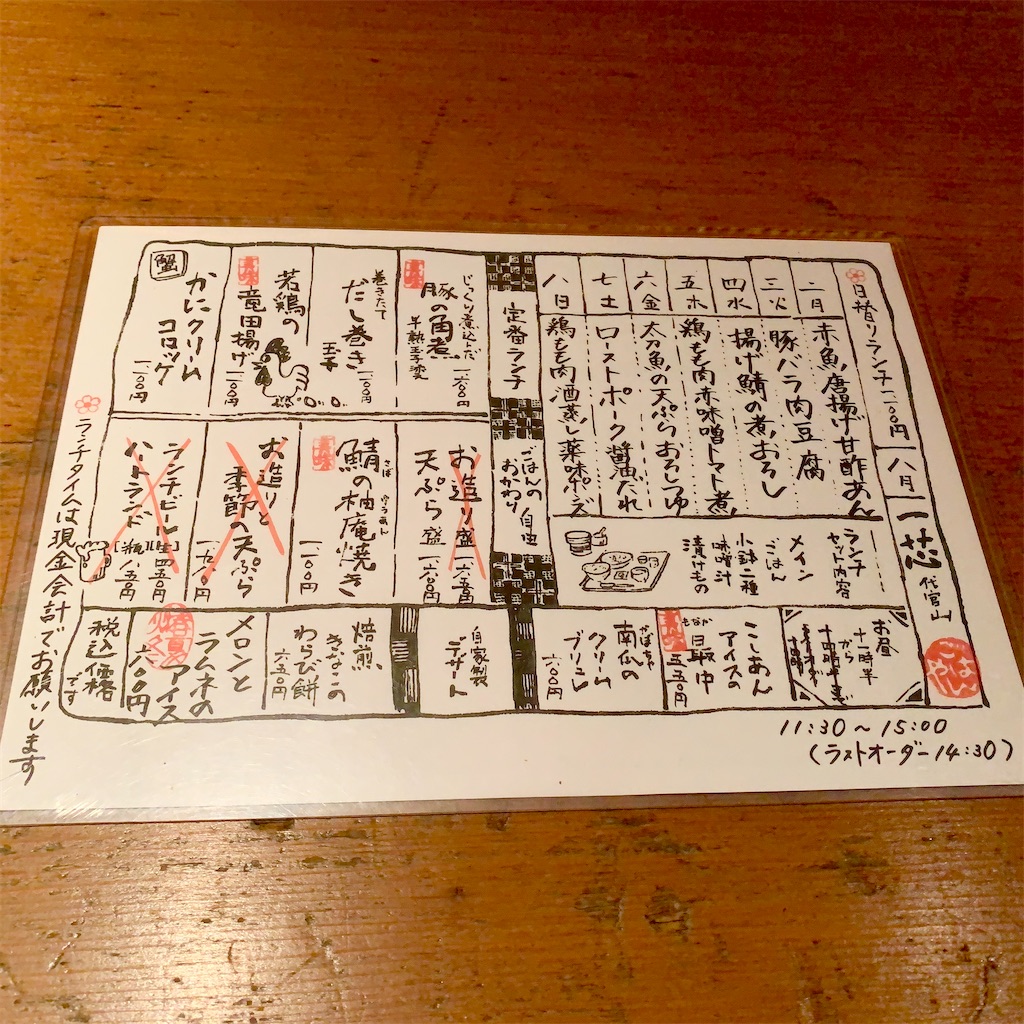 日替りランチ 一、一〇〇円
八月
一芯
代官山
ごはん
二月
赤魚唐揚げ甘酢あん
三火
豚バラ肉豆腐
四水
揚げ鯖の煮おろし
五木
鶏もも肉赤味噌トマト煮
六金
太刀魚の天ぷらおろしつゆ
七土
ローストポーク醤油だれ
八日
鶏もも肉酒蒸し薬味ポン酢
ランチセット内容
メイン
ごはん
小鉢二種
味噌汁
漬けもの
定番ランチ
ごはんのおかわり自由
じっくり煮込んだ
豚の角煮
半熟玉子変
巻きたて
だし巻き
玉子
一、一〇〇円
若鶏の
竜田揚げ
一、一〇〇円
蟹
かにクリーム
コロッケ
一、一〇〇円
お造り盛
一、六五〇円
天ぷら盛
一、六〇〇円
鯖の柚庵焼き
さば
ゆうあん
一、一〇〇円
お造りと
季節の天ぷら
ランチビール
ハートランド
お昼
十一時半
から
十四時半まで
こしあん
アイスの
最中
もなか
五五〇円
南瓜の
かぼちゃ
クリーム
ブリュレ
六〇〇円
自家製
デザート
焙煎
きなこの
わらび餅
六五〇円
メロンと
ラムネの
アイス
六〇〇円
税込価格
です
11:30〜15:00
(ラストオーダー14:30)
ランチタイムは現金会計でお願いします